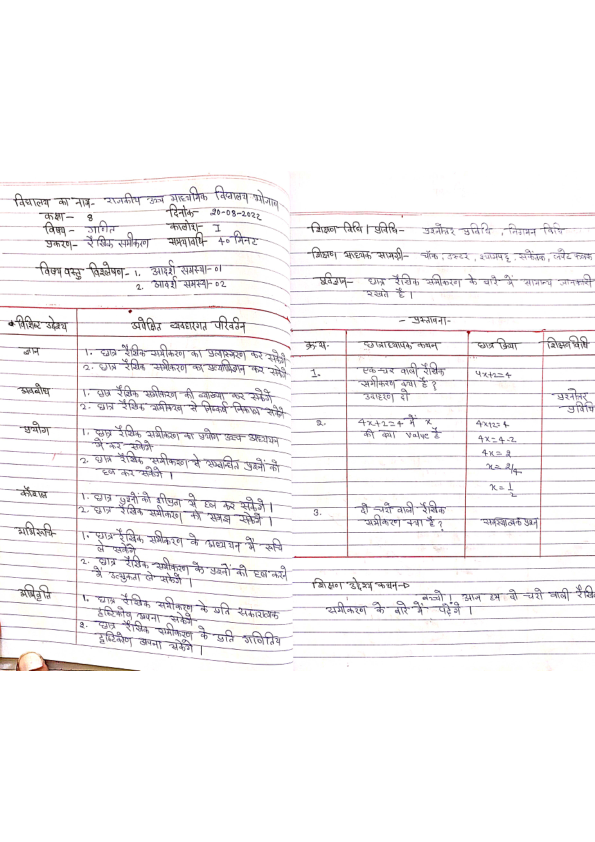 विद्यालय का नाम- राजकीय उच्च माध्यमिक विद्यालय
कक्षा- 8 दिनांक- 20-08-2022
विषय- गणित कालांश- I
प्रकरण- रैखिक समीकरण समयावधि- 40 मिनट
विषय वस्तु विश्लेषण- 1. आदर्श समस्या-01
2. आदर्श समस्या-02
विशिष्ट उद्देश्य अपेक्षित व्यवहारगत परिवर्तन
ज्ञान 1. छात्र रैखिक समीकरण का प्रत्यास्मरण कर सकेंगे
2. छात्र रैखिक समीकरण का प्रत्यभिज्ञान कर सकेंगे
अवबोध 1. छात्र रैखिक समीकरण की व्याख्या कर सकेंगे
2. छात्र रैखिक समीकरण से निष्कर्ष निकाल सकेंगे
प्रयोग 1. छात्र रैखिक समीकरण का प्रयोग उच्च अध्ययन
में कर सकेंगे
2. छात्र रैखिक समीकरण से सम्बन्धित प्रश्नों को
हल कर सकेंगे ।
कौशल 1. छात्र प्रश्नों को शीघ्रता से हल कर सकेंगे ।
2. छात्र रैखिक समीकरण को समझ सकेंगे ।
अभिरूचि 1. छात्र रैखिक समीकरण के अध्ययन में रूचि
ले सकेंगे
2. छात्र रैखिक समीकरण के प्रश्नों को हल करने
में उत्सुकता ले सकेंगे ।
अभिवृत्ति 1. छात्र रैखिक समीकरण के प्रति सकारात्मक
दृष्टिकोण अपना सकेंगे
2. छात्र रैखिक समीकरण के प्रति गणितिय
दृष्टिकोण अपना सकेंगे ।
शिक्षण विधि । प्रविधि- प्रश्नोत्तर प्रविधि , निगमन विधि
शिक्षण सहायक सामग्री- चॉक, डस्टर, श्यामपट्ट, संकेतक, फलक
पूर्वज्ञान- छात्र रैखिक समीकरण के बारे में सामान्य जानकारी
रखते है ।
- प्रस्तावना-
क्र.स. छात्राध्यापक कथन छात्र क्रिया शिक्षण विधि
1. एक चर वाली रैखिक 4x+2=4
समीकरण क्या है ?
उदाहरण दो प्रश्नोत्तर
प्रविधि
2. 4x+2=4 में x 4x+2=4
की क्या value है 4x=4-2
4x=2
x=2/4
x=1/2
3. दो चरों वाली रैखिक
समीकरण क्या है ? समस्यात्मक प्रश्न
शिक्षण उद्देश्य कथन-
बच्चो । आज हम दो चरो वाली रैखिक
समीकरण के बारे में पढ़ेंगे ।